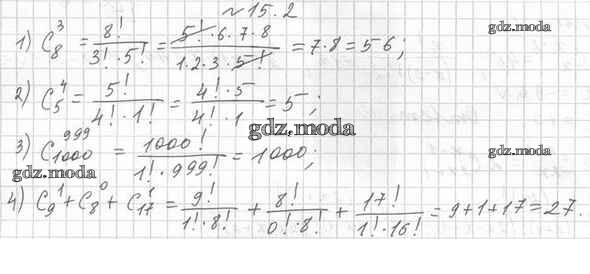 №15.2
1) C₈³ = 8!/(3!·5!) = (5!·6·7·8)/(1·2·3·5!) = 7·8 = 56;
gdz.moda
gdz.moda
2) C₅⁴ = 5!/(4!·1!) = (4!·5)/(4!·1) = 5;
gdz.moda
3) C₁₀₀₀⁹⁹⁹ = 1000!/(1!·999!) = 1000;
gdz.moda
gdz.moda
4) C₉¹ + C₈⁰ + C₁₇¹ = 9!/(1!·8!) + 8!/(0!·8!) + 17!/(1!·16!) = 9+1+17 = 27.